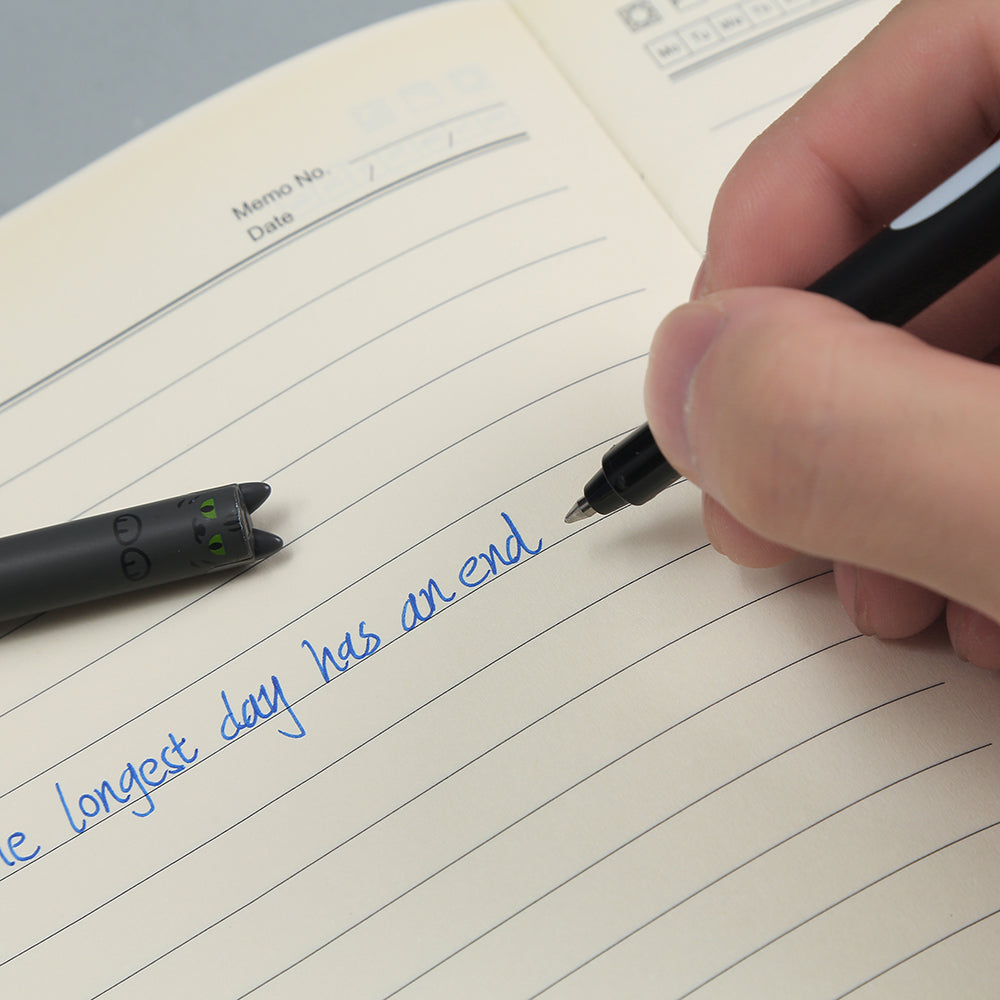 Mo Tu We Th
Memo No.
Date / /
he longest day has an end